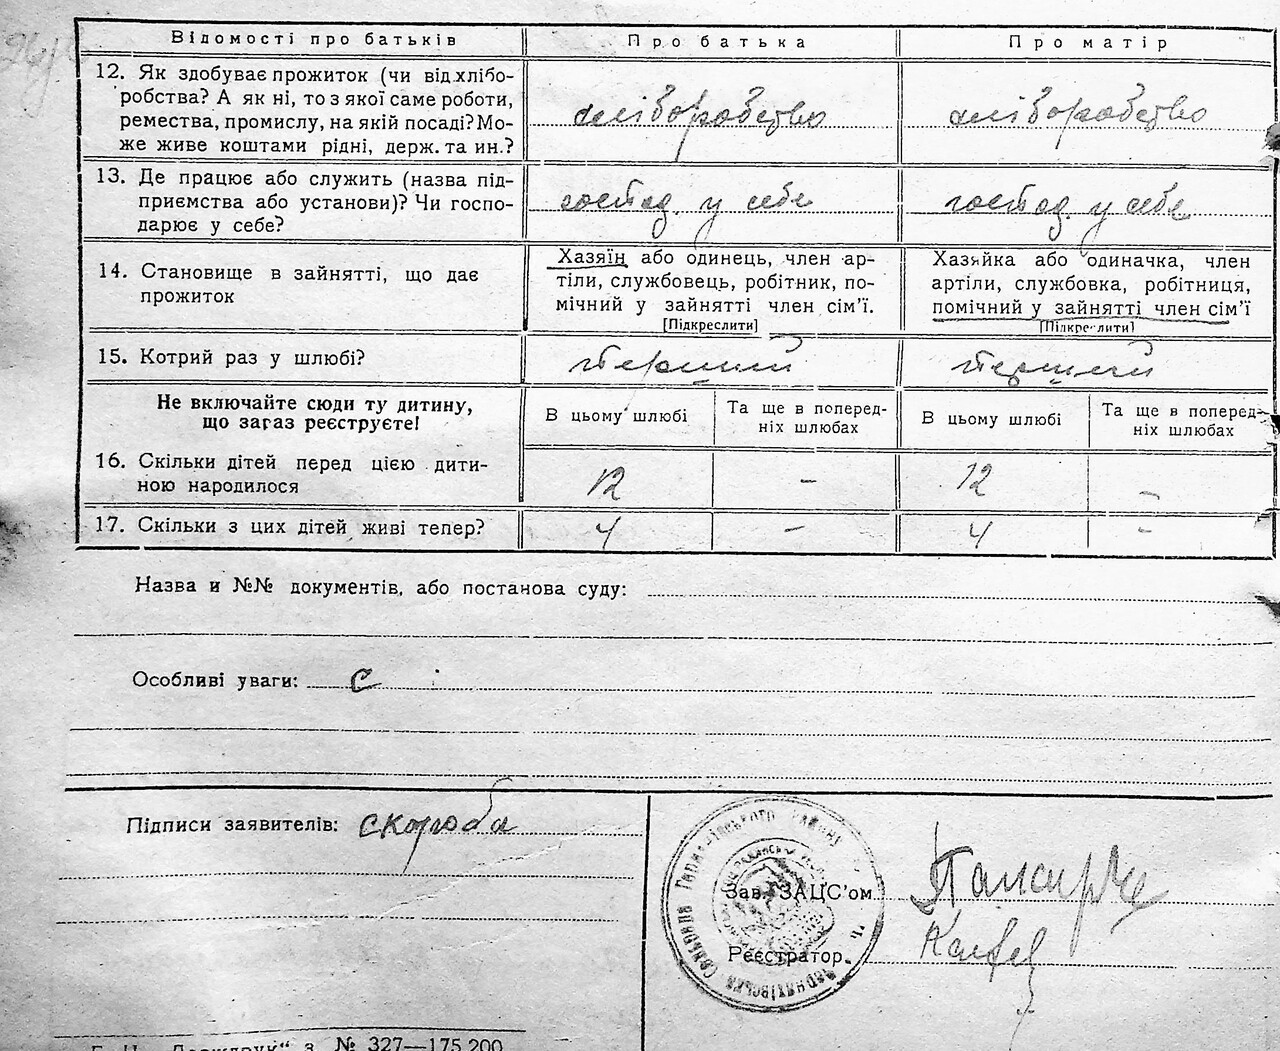 Відомості про батьків
Про батька
Про матір
12. Як здобуває прожиток (чи від хлібо-
робства? А як ні, то з якої саме роботи,
ремества, промислу, на якій посаді? Мо-
же живе коштами рідні, держ. та ин.?
хліборобство
хліборобство
13. Де працює або служить (назва під-
приємства або установи)? Чи госпо-
дарює у себе?
господ. у себе
господ. у себе
14. Становище в зайнятті, що дає
прожиток
Хазяїн або одинець, член ар-
тіли, службовець, робітник, по-
мічний у зайнятті член сім'ї.
[Підкреслити]
Хазяйка або одиначка, член
артіли, службовка, робітниця,
помічний у зайнятті член сім'ї
[Підкреслити]
15. Котрий раз у шлюбі?
перший
перший
Не включайте сюди ту дитину,
що зараз реєструєте!
В цьому шлюбі
Та ще в поперед-
ніх шлюбах
В цьому шлюбі
Та ще в поперед-
ніх шлюбах
16. Скільки дітей перед цією дити-
ною народилося
12
-
12
-
17. Скільки з цих дітей живі тепер?
4
-
4
-
Назва и №№ документів, або постанова суду:
Особливі уваги: С
Підписи заявителів: скороба
Зав. ЗАЦС'ом
Реєстратор
№ 327—175.200